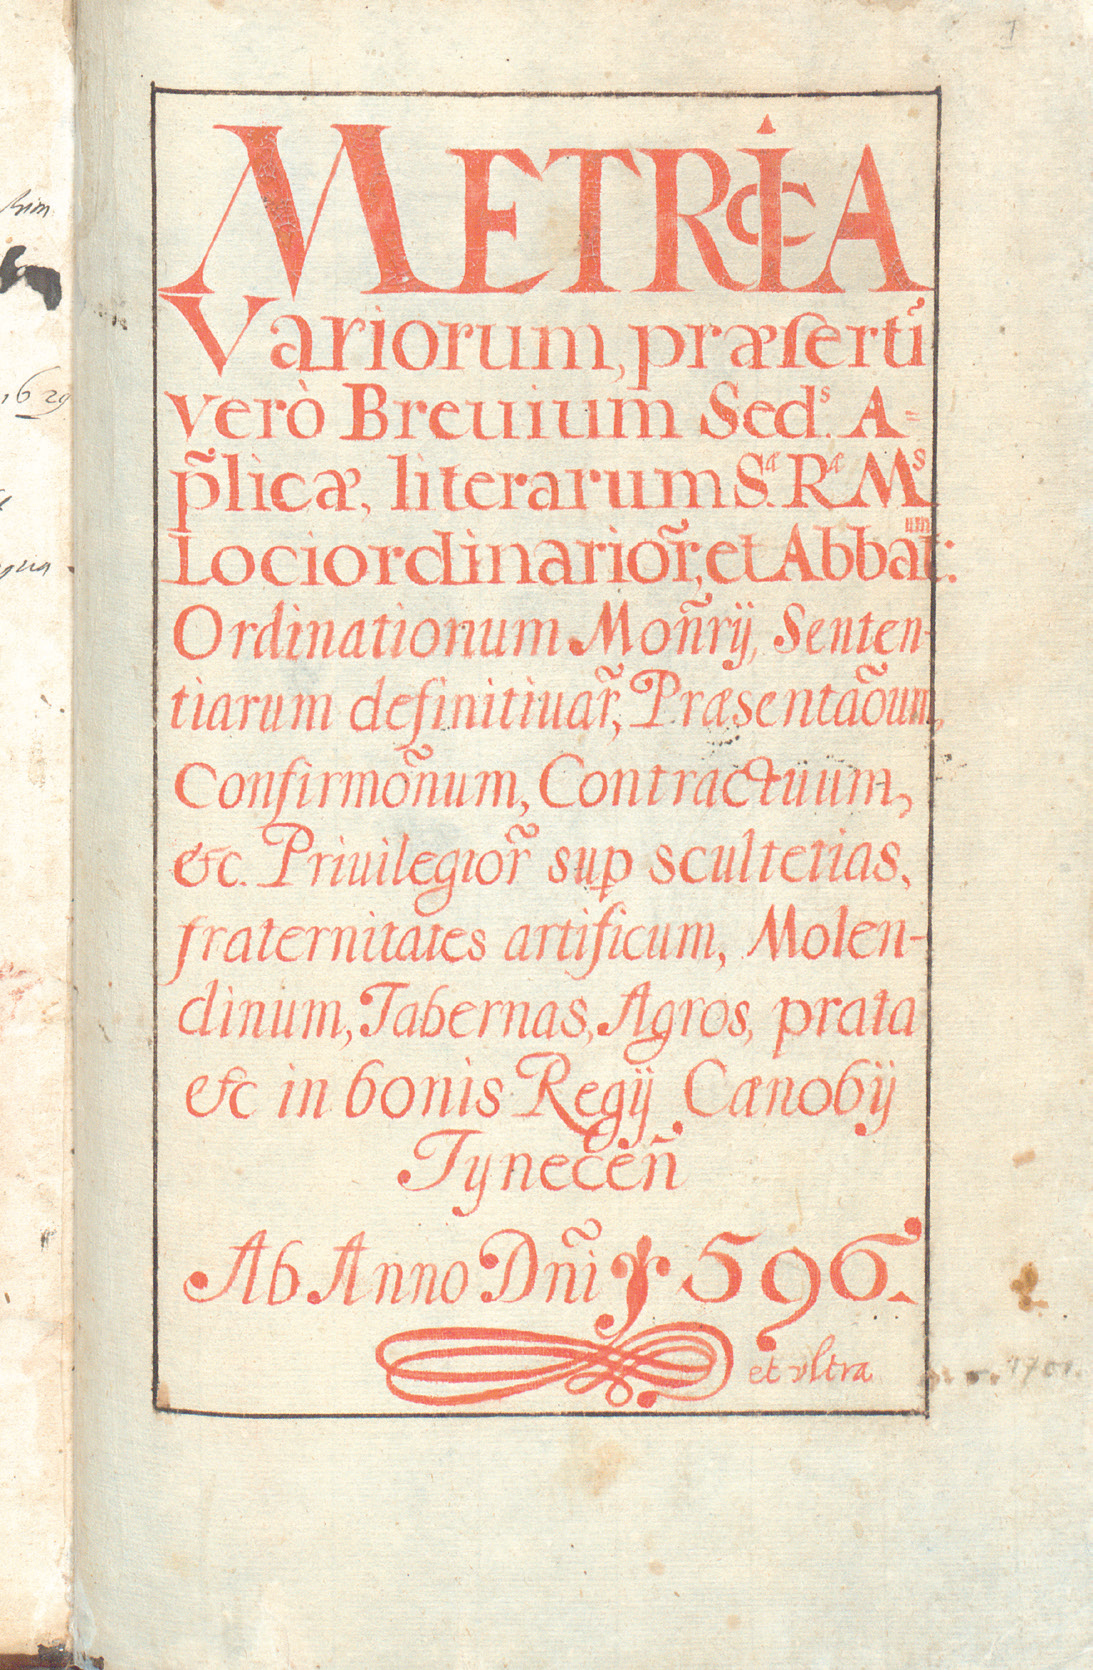 1
METRICCA
Variorum, præſertĩ
verò Breuium Sedˢ. A=
p̃licæ, literarum Sᵃᵉ. Rᵃᵉ Mˢ
Lociordinarior̃, et Abbatᵘᵐ:
Ordinationum Moñrij, Senten-
tiarum definitiuar̃, Præsentaõum,
Confirmõnum, Contractuum,
&c. Priuilegior̃ suꝑ scultetias,
fraternitates artificum, Molen-
dinum, Tabernas, Agros, prata
&c in bonis Regij Cænobij
Tyneceñ
Ab Anno Dñi 1596.
et vltra
1701.
1629